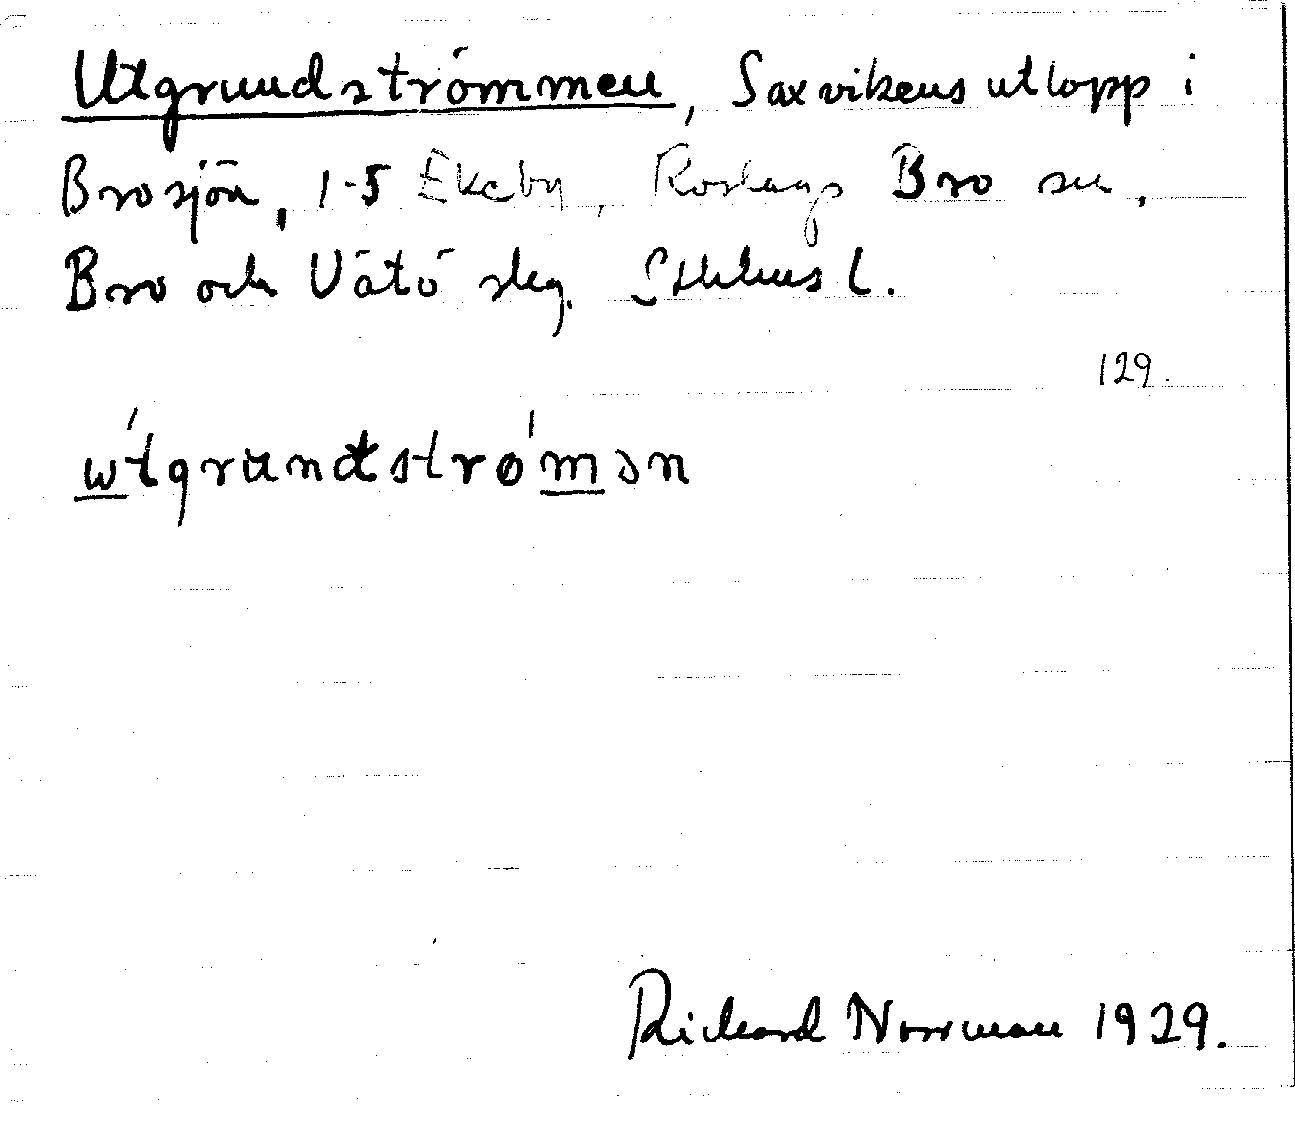 Utgrundströmmen, Saxvikens utlopp i
Brosjön, 1-5 Ekeby, Roslags Bro sn,
Bro och Vätö skg. Sthlms l.
129.
ẃtgrundstrǿmən
Richard Norrman 1929.